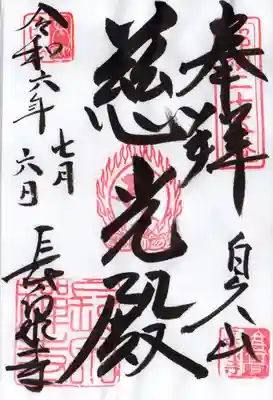 奉拝
自久山
慈光殿
令和六年
七月
六日
長泉寺